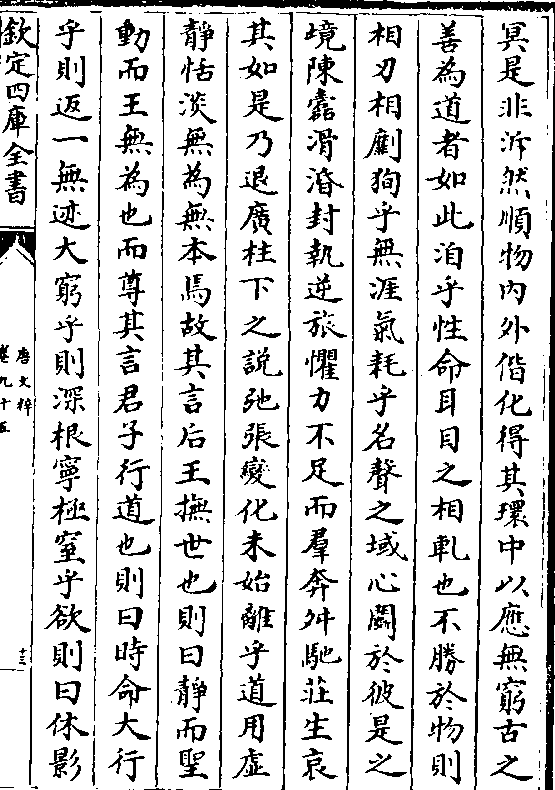 冥是非泝然順物内外偕化得其環中以應無窮古之
善為道者如此洎乎性命耳目之相軋也不勝於物則
相刃相劘狥乎無涯氣耗乎名聲之域心鬭於彼是之
境陳蠹滑湣封執逆旅懼力不足而羣奔舛馳莊生哀
其如是乃退廣柱下之說弛張變化未始離乎道用虚
靜恬淡無為無本焉故其言后王撫世也則曰靜而聖
動而王無為也而尊其言君子行道也則曰時命大行
乎則返一無迹大窮乎則深根寧極窒乎欲則曰休影
欽定四庫全書
唐文粹
卷九十五
十三